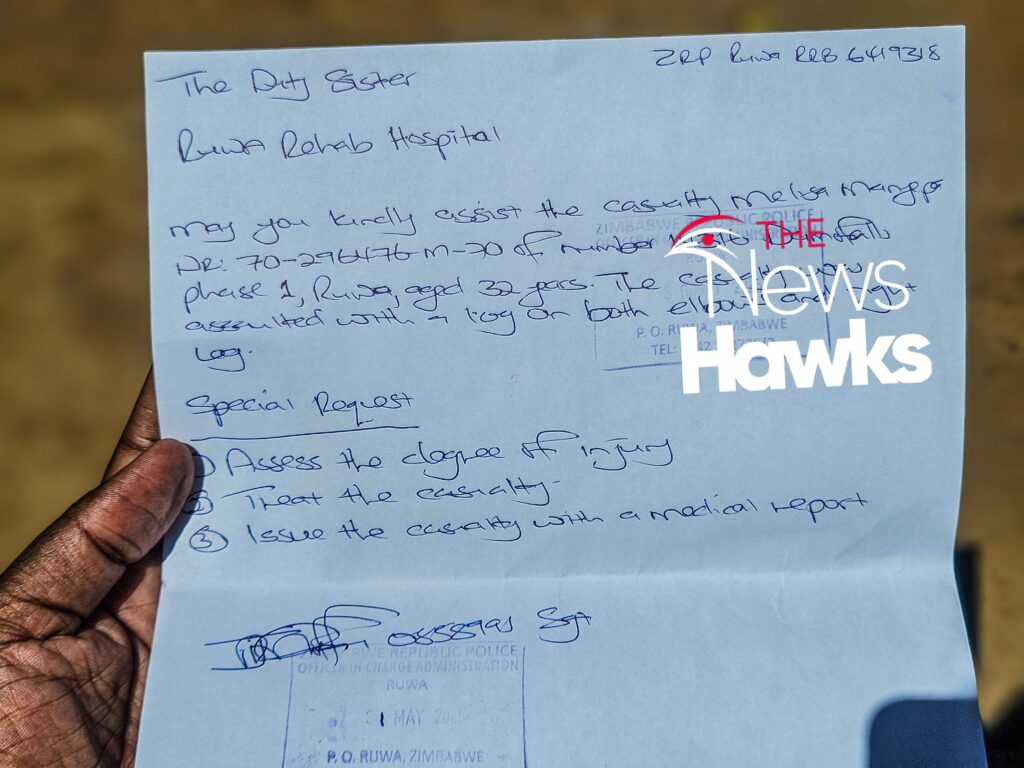 ZRP Ruwa RRB 6419318
The Duty Sister
Ruwa Rehab Hospital
May you kindly assist the casualty Melisa
NR: 70-296476-M-70 of number
phase 1, Ruwa, aged 32 years. The casualty was
assulted with a log on both elbows and right
Leg.
ZIMBABWE REPUBLIC POLICE
P. O. RUWA, ZIMBABWE
TEL:
THE
News
Hawks
Special Request
① Assess the degree of injury
② Treat the casualty.
③ Issue the casualty with a medical report
Sgt
REPUBLIC POLICE
OFFICER-IN-CHARGE ADMINISTRATION
RUWA
31 MAY
P. O. RUWA, ZIMBABWE